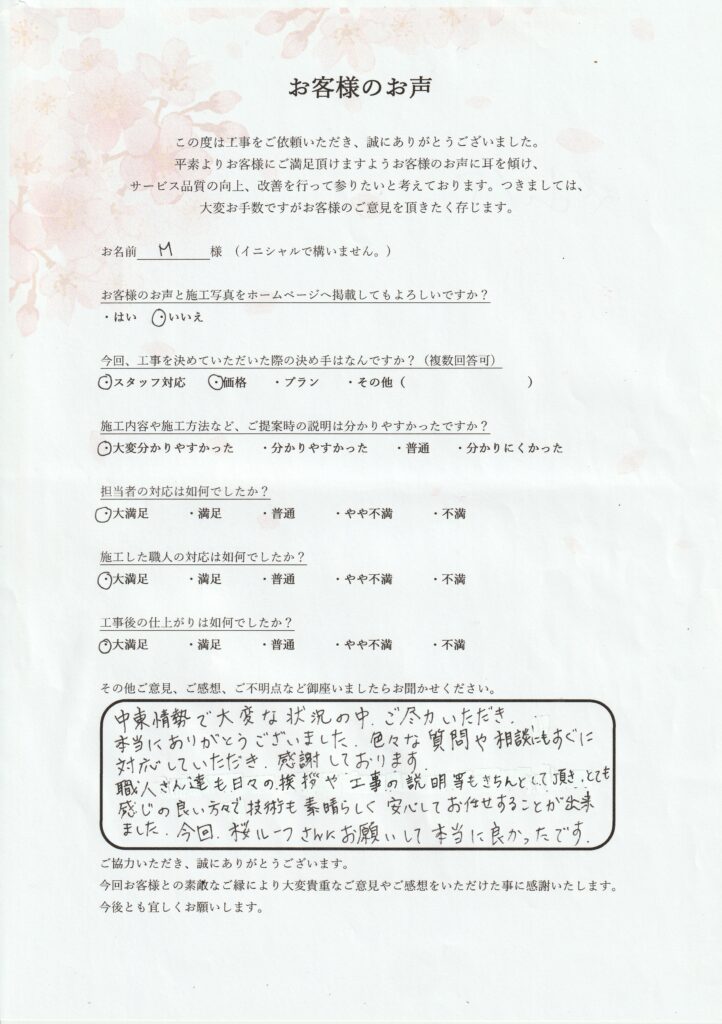 お客様のお声
この度は工事をご依頼いただき、誠にありがとうございました。
平素よりお客様にご満足頂けますようお客様のお声に耳を傾け、
サービス品質の向上、改善を行って参りたいと考えております。つきましては、
大変お手数ですがお客様のご意見を頂きたく存じます。
お名前 M 様 （イニシャルで構いません。）
お客様のお声と施工写真をホームページへ掲載してもよろしいですか？
・はい ・いいえ
今回、工事を決めていただいた際の決め手はなんですか？（複数回答可）
・スタッフ対応 ・価格 ・プラン ・その他（ ）
施工内容や施工方法など、ご提案時の説明は分かりやすかったですか？
・大変分かりやすかった ・分かりやすかった ・普通 ・分かりにくかった
担当者の対応は如何でしたか？
・大満足 ・満足 ・普通 ・やや不満 ・不満
施工した職人の対応は如何でしたか？
・大満足 ・満足 ・普通 ・やや不満 ・不満
工事後の仕上がりは如何でしたか？
・大満足 ・満足 ・普通 ・やや不満 ・不満
その他ご意見、ご感想、ご不明点など御座いましたらお聞かせください。
中東情勢で大変な状況の中、ご尽力いただき、
本当にありがとうございました。色々な質問や相談にもすぐに
対応していただき、感謝しております。
職人さん達も日々の挨拶や工事の説明等もきちんとして頂き、とても
感じの良い方々で技術も素晴らしく安心してお任せすることが出来
ました。今回、桜ルーフさんにお願いして本当に良かったです。
ご協力いただき、誠にありがとうございます。
今回お客様との素敵なご縁により大変貴重なご意見やご感想をいただけた事に感謝いたします。
今後とも宜しくお願いします。